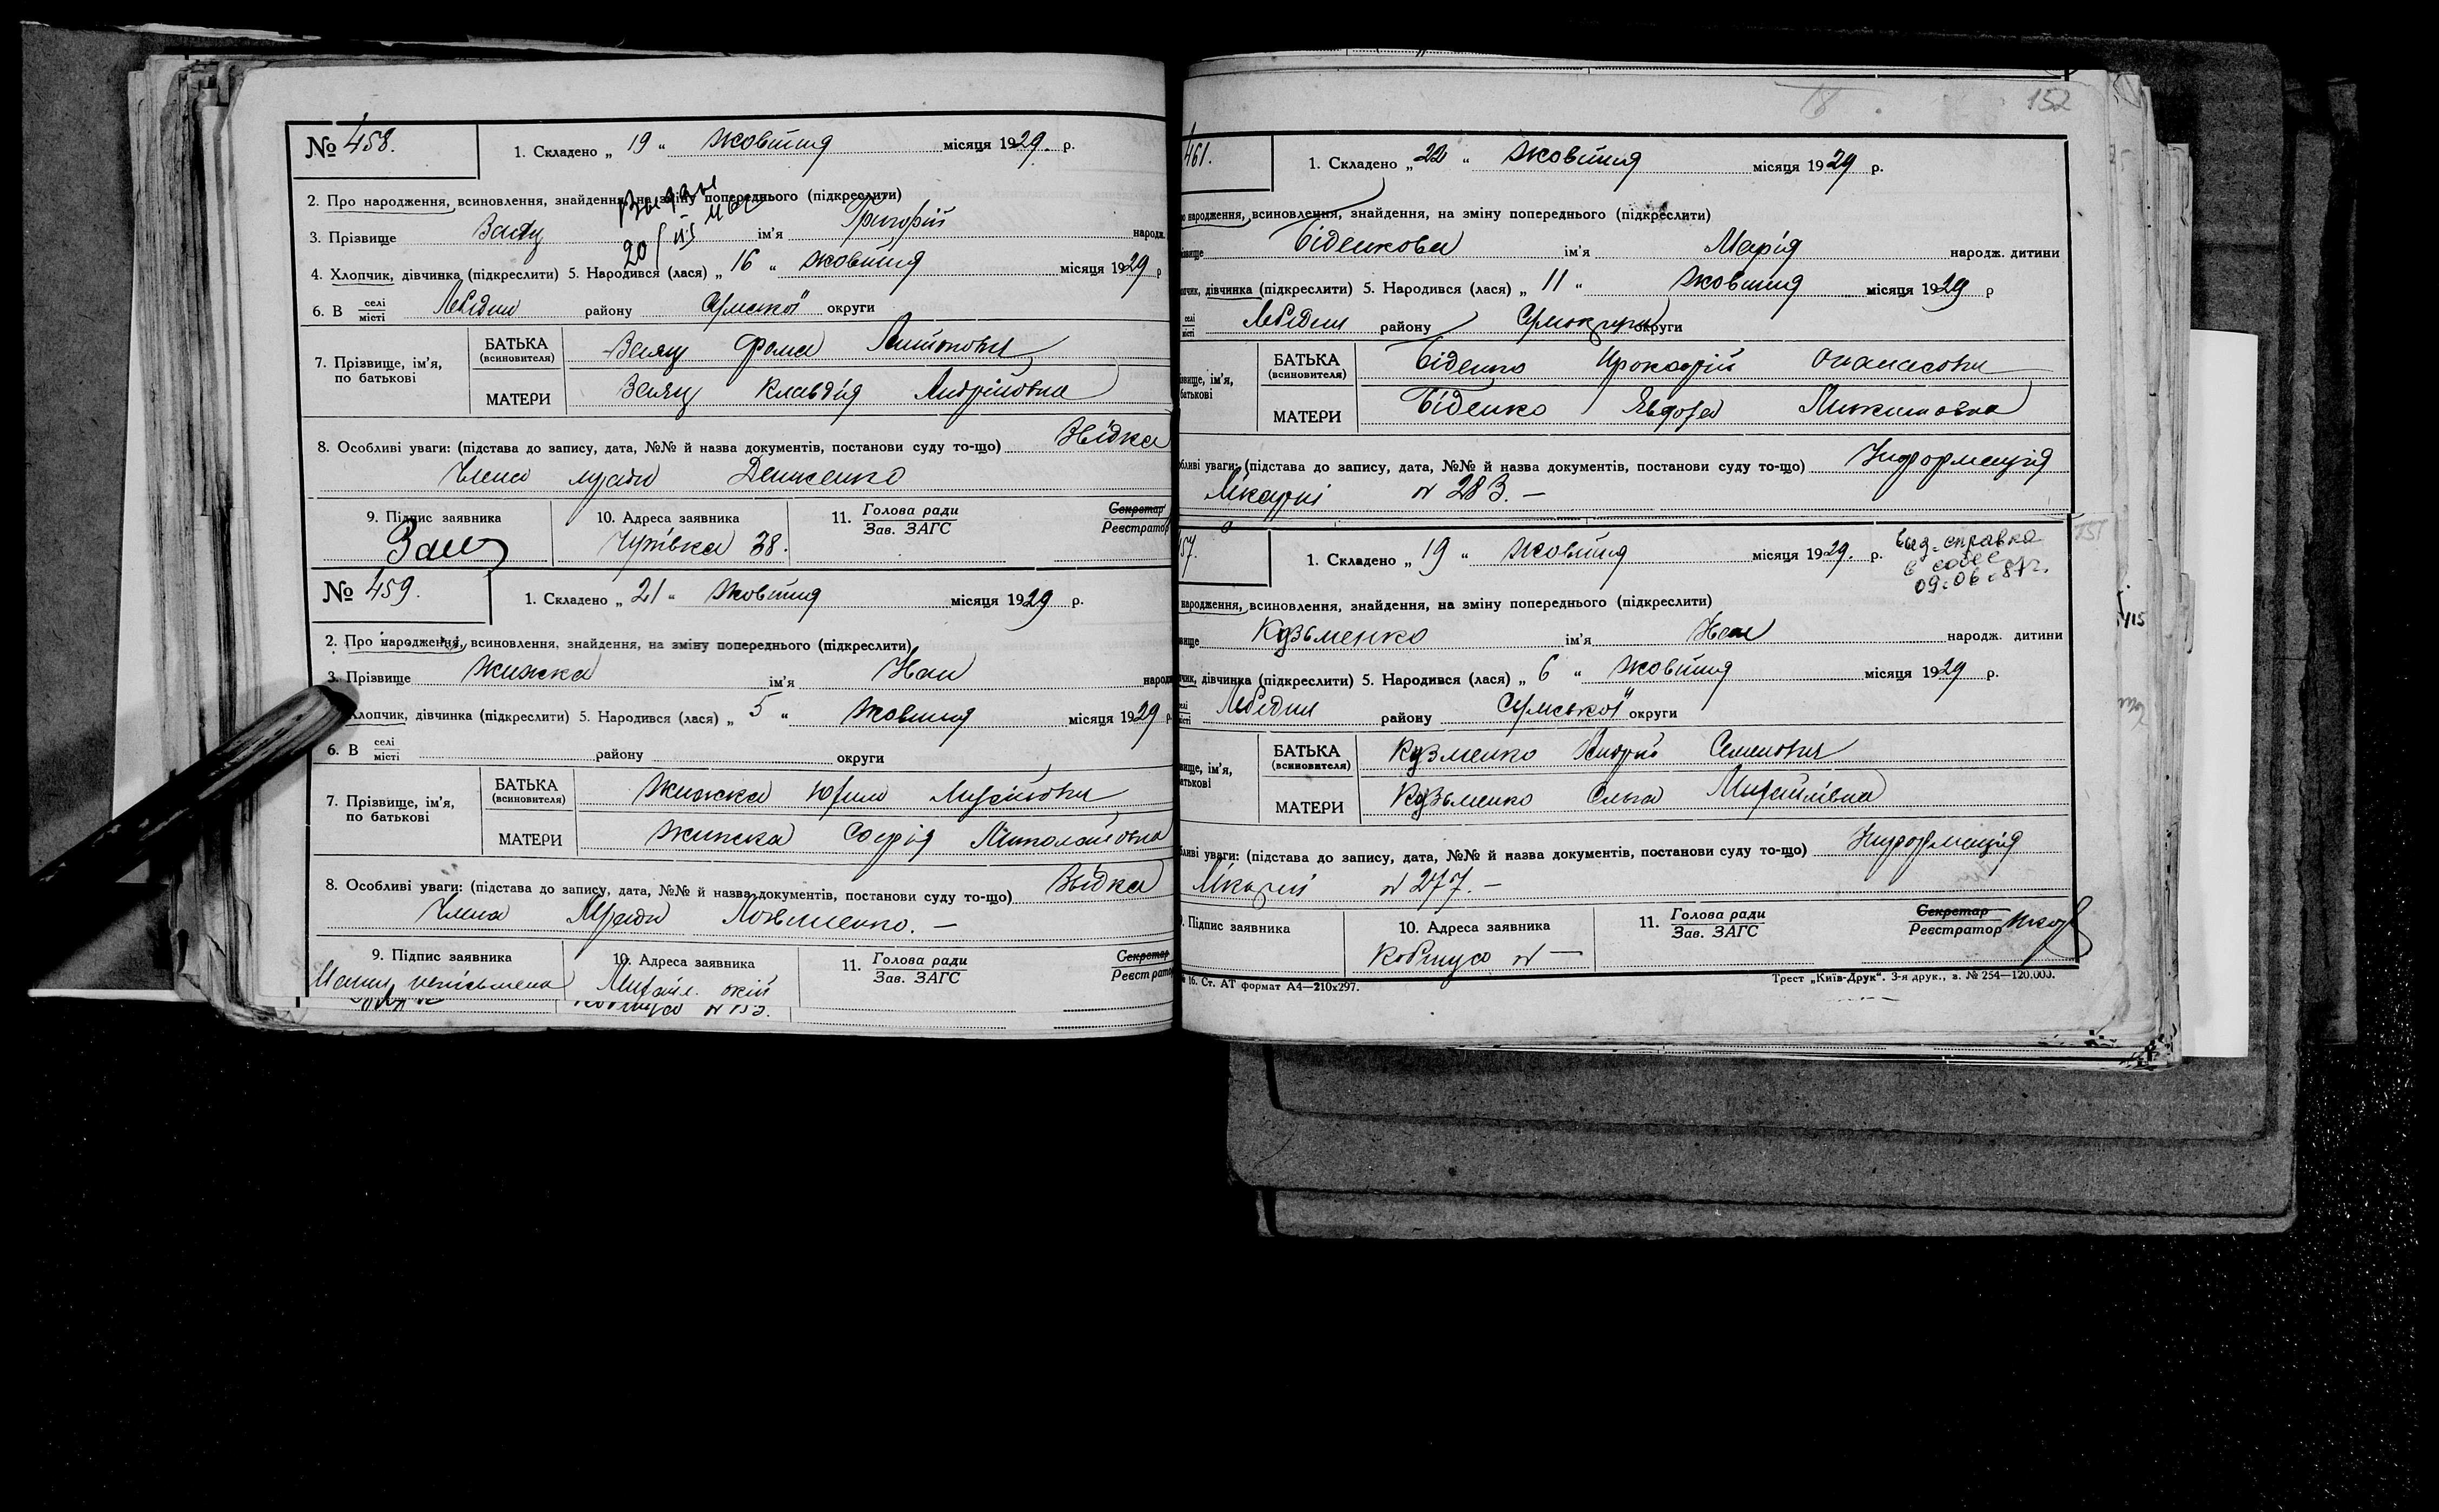 № 458.
1. Складено „ 19 “ жовтня місяця 1929. р.
2. Про народження, всиновлення, знайдення, на зміну попереднього (підкреслити)
3. Прізвище Заяц ім'я Григорій народж.
4. Хлопчик, дівчинка (підкреслити) 5. Народився (лася) „ 16 “ жовтня місяця 1929 р
6. В селі місті Лебедин району Сумської округи
7. Прізвище, ім'я, по батькові
БАТЬКА (всиновителя) Заяц Фома Антонович
МАТЕРИ Заяц Клавдія Андрійовна
8. Особливі уваги: (підстава до запису, дата, №№ й назва документів, постанови суду то-що) Звідка
Члена м/ради Денисенко
9. Підпис заявника 10. Адреса заявника 11. Голова ради Зав. ЗАГС Секретар Реєстратор
Заяц 38.
№ 459.
1. Складено „ 21 “ жовтня місяця 1929 р.
2. Про народження, всиновлення, знайдення, на зміну попереднього (підкреслити)
3. Прізвище Жижка ім'я Іван народж
Хлопчик, дівчинка (підкреслити) 5. Народився (лася) „ 5 “ жовтня місяця 1929 р.
6. В селі місті району округи
7. Прізвище, ім'я, по батькові
БАТЬКА (всиновителя) Жижка Юхим
МАТЕРИ Жижка Софія Миколаївна
8. Особливі уваги: (підстава до запису, дата, №№ й назва документів, постанови суду то-що) Звідка
Члена М/ради
9. Підпис заявника 10. Адреса заявника 11. Голова ради Зав. ЗАГС Секретар Реєстратор
неписьмена
152
461.
1. Складено „ 22 “ жовтня місяця 1929 р.
народження, всиновлення, знайдення, на зміну попереднього (підкреслити)
Біденкова ім'я Марія народж. дитини
дівчинка (підкреслити) 5. Народився (лася) „ 11 “ жовтня місяця 1929 р
Лебедин району Сумокруги округи
БАТЬКА (всиновителя) Біденко Прокофій Опанасович
МАТЕРИ Біденко Явдоха Микитовна
уваги: (підстава до запису, дата, №№ й назва документів, постанови суду то-що) Інформація
Лікарні № 283. —
457.
1. Складено „ 19 “ жовтня місяця 1929. р.
выд. справка
в собес
09.06.87г.
151
народження, всиновлення, знайдення, на зміну попереднього (підкреслити)
Кузьменко ім'я Іван народж. дитини
дівчинка (підкреслити) 5. Народився (лася) „ 6 “ жовтня місяця 1929 р.
Лебедин району Сумської округи
БАТЬКА (всиновителя) Кузменко Андрій Семенович
МАТЕРИ Кузьменко Ольга Михайлівна
уваги: (підстава до запису, дата, №№ й назва документів, постанови суду то-що) Інформація
Лікарні № 277. —
Підпис заявника 10. Адреса заявника 11. Голова ради Зав. ЗАГС Секретар Реєстратор
16. Ст. АТ формат А4—210х297. Трест „Київ-Друк“. 3-я друк., з. № 254—120.000.